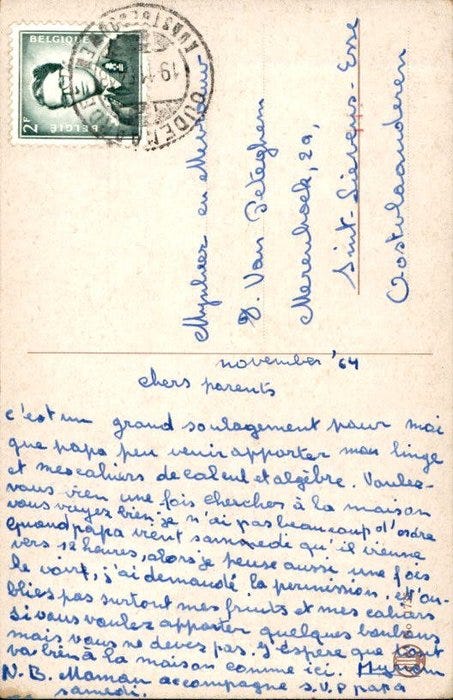 BELGIQUE
2F
BELGIË
19
Mijnheer en Mevrouw
Van Peteghem
Merenhoek, 29,
Sint-Lievens-Esse
Oostvlaanderen
november '64
chers parents
c'est un grand soulagement pour moi
que papa peu venir apporter mon linge
et mes cahiers de calcul et algèbre. Voulez-
vous bien une fois chercher à la maison
vous voyez bien, je n'ai pas beaucoup d'ordre
Quand papa vient samedi qu'il vienne
vers 12 heures, alors je peuse aussi une fois
le voir, j'ai demandé la permission. N'ou-
bliez pas surtout mes fruits et mes cahiers
si vous voulez apporter quelques bonbons
mais vous ne devez pas. J'espère que tout
va bien à la maison comme ici.
N.B. Maman accompagne s.V.p papa
samedi.